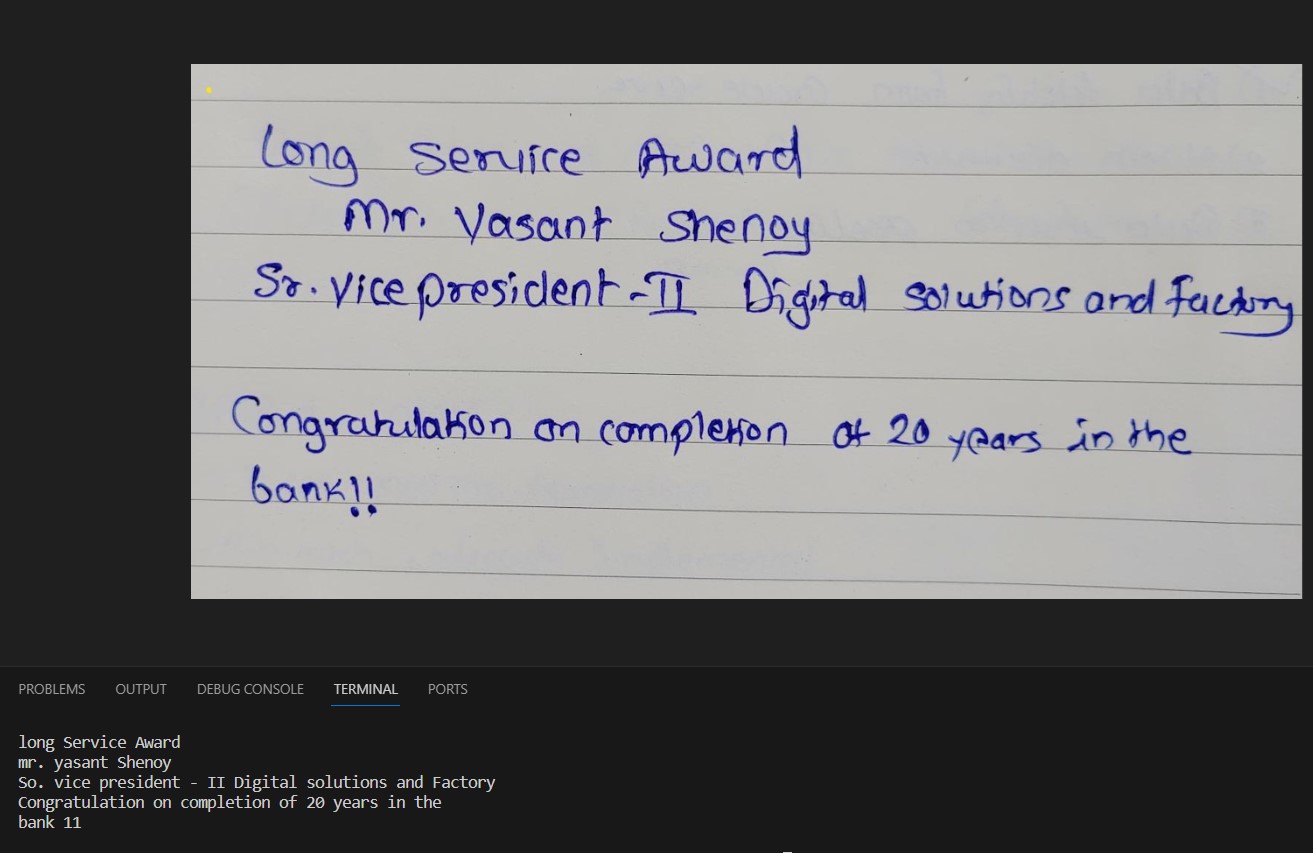 Long Service Award
Mr. Vasant Shenoy
Sr. Vice president - II Digital solutions and Factory
Congratulation on completion of 20 years in the
bank!!
PROBLEMS OUTPUT DEBUG CONSOLE TERMINAL PORTS
long Service Award
mr. yasant Shenoy
So. vice president - II Digital solutions and Factory
Congratulation on completion of 20 years in the
bank 11